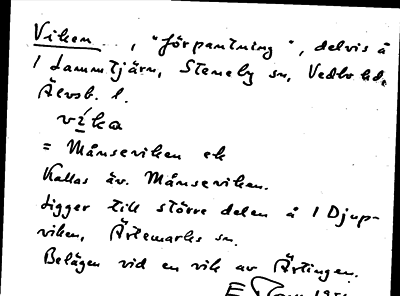 Viken . . , "förpantning", delvis å
1 Dammtjärn, Steneby sn, Vedbo hd,
Älvsb. l.
víka
= Månseviken ek
Kallas äv. Månseviken.
Ligger till större delen å 1 Djup-
viken, Ärtemarks sn.
Belägen vid en vik av Ärtingen.